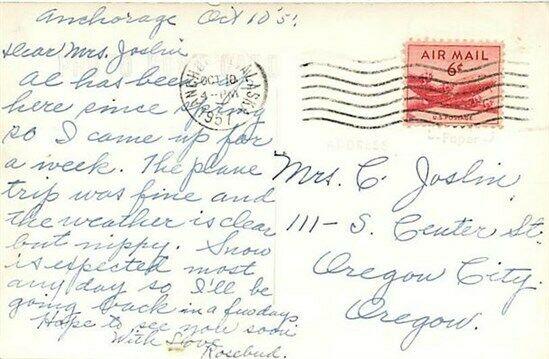 Anchorage Oct 10'51
Dear Mrs. Joslin
Al has been
here since spring
so I came up for
a week. The plane
trip was fine and
the weather is clear
but nippy. Snow
is expected most
any day so I'll be
going back in a few days
Hope to see you soon
With Love
Rosebud.
ANCHORAGE ALASKA
OCT 10
4-PM
1951
AIR MAIL
6¢
U.S. POSTAGE
ADDRESS
Mrs. C. Joslin
111- S. Center St.
Oregon City.
Oregon.